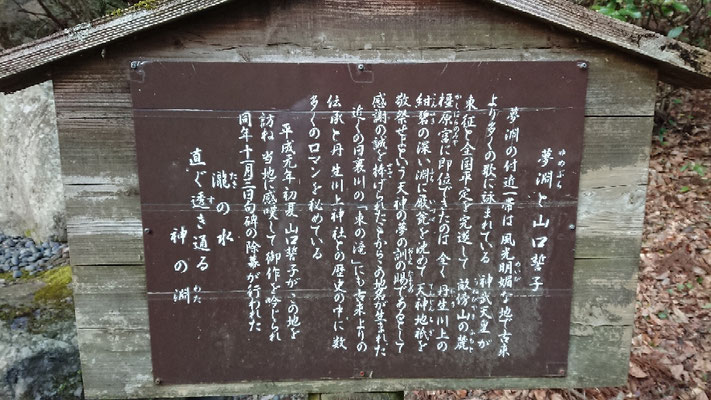 夢淵と山口誓子
夢淵の付近一帯は 風光明媚な地で古来
より多くの歌に詠まれている 神武天皇が
東征と全国平定を完遂して 畝傍山の麓
橿原宮に即位できたのは 全く丹生川上の
紺碧の深い淵に厳瓮を沈めて 天神地祇を
敬祭せよという天神の夢の訓の賜であるとして
感謝の誠を捧げられたことからこの地名が生まれた
近くの日裏川の「東の滝」にも古来よりの
伝承と丹生川上神社との歴史の中に数
多くのロマンを秘めている
平成元年初夏 山口誓子が この地を
訪ね 当地に感嘆して 御作を吟じられ
同年十一月三日句碑の除幕が行われた
瀧の水
直ぐ透き通る
神の淵